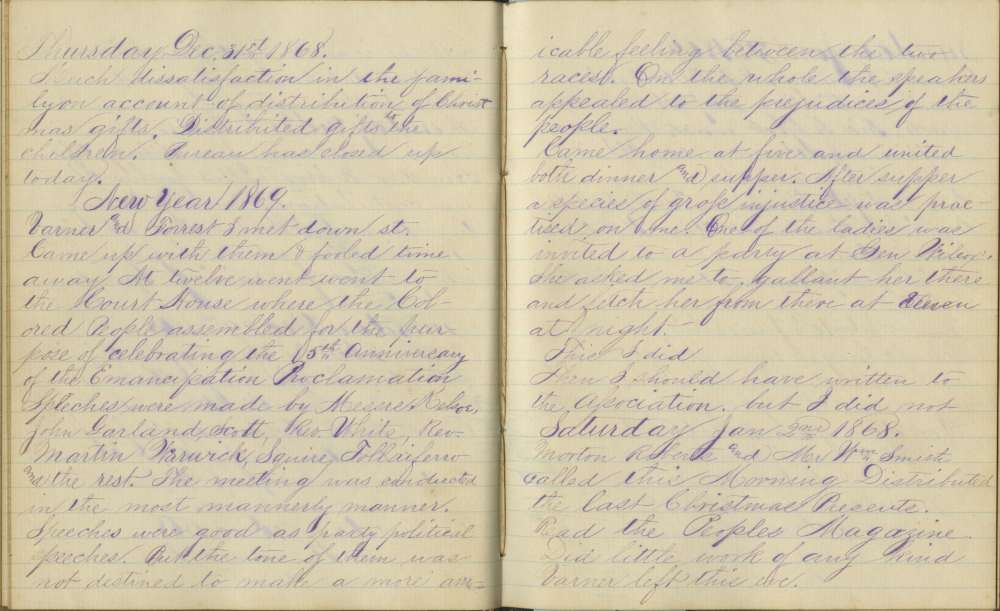 Thursday Dec. 31st 1868.
Much dissatisfaction in the fami-
ly on account of distribution of Christ
mas gifts. Distributed gifts to the
children. Bureau has closed up
today.
New Year 1869.
Varner and Forrest I met down st.
Came up with them & fooled time
away. At twelve went went to
the Court House where the Col-
ored People assembled for the pur-
pose of celebrating the 5th Anniversary
of the Emancipation Proclamation
Speches were made by Messrs
John Garland, Scott, Rev. White, Rev.
Martin Warwick, Squire Tolliaferro
and the rest. The meeting was conducted
in the most mannerly manner.
Speeches were good as party political
speeches. But the tone of them was
not destined to make a more am-
icable feeling between the two
races. On the whole the speakers
appealed to the prejudices of the
people.
Came home at five and united
both dinner and supper. After supper
a species of gross injustice was prac-
tised on me. One of the ladies was
invited to a party at Gen Wilcox.
She asked me to gallant her there
and fetch her from there at eleven
at night.
This I did
Then I should have written to
the Asociation. but I did not
Saturday Jan 2nd 1868.
Morton and Mr Wm Smith
called this Morning Distributed
the last Christmas Presents.
Read the Peoples Magazine.
Did little work of any kind
Varner left this eve.